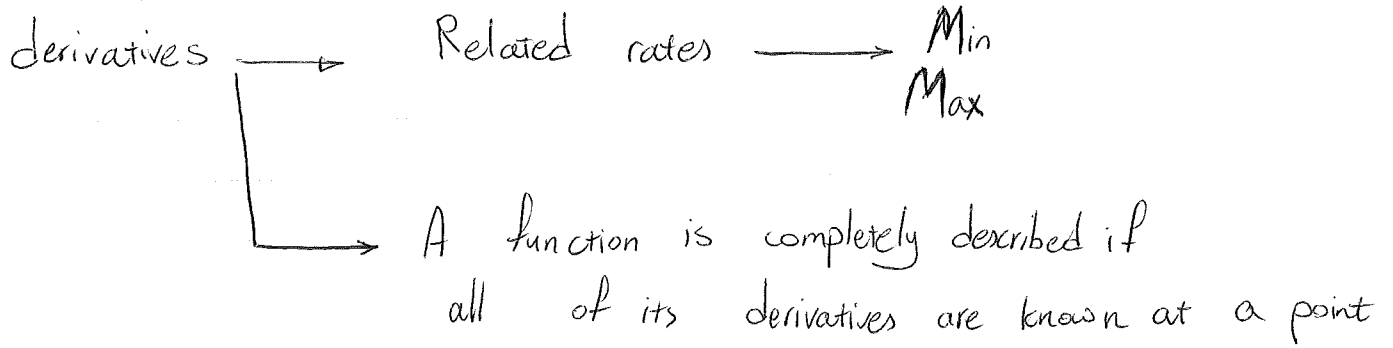 derivatives → Related rates → Min
Max
A function is completely described if
all of its derivatives are known at a point